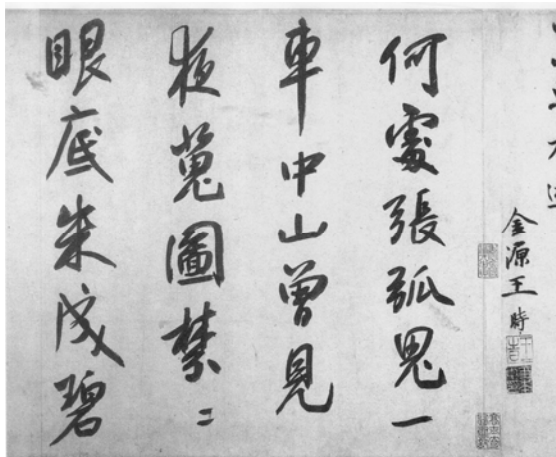 金源王時
何處張弧鬼一
車中山曾見
夜蒐圖禁〻
眼底朱成碧